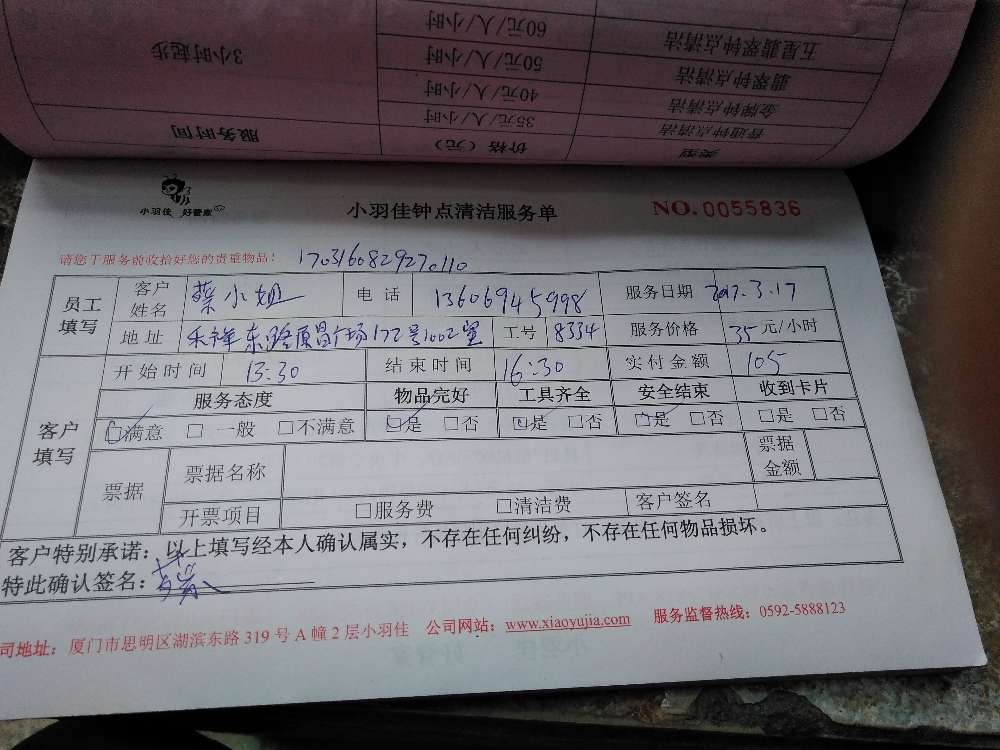 五星翡翠钟点清洁 60元/人/小时
翡翠钟点清洁 50元/人/小时
金牌钟点清洁 40元/人/小时 3小时起步
普通钟点清洁 35元/人/小时
类型 价格（元） 服务时间
小羽佳 好管家
小羽佳钟点清洁服务单
NO.0055836
请您于服务前收拾好您的贵重物品！ 1703160829270110
员工填写 客户姓名 蔡小姐 电话 13606945998 服务日期 2017.3.17
地址 禾祥东路原昌广场172号1002室 工号 8334 服务价格 35 元/小时
开始时间 13:30 结束时间 16:30 实付金额 105
客户填写 服务态度 物品完好 工具齐全 安全结束 收到卡片
□满意 □ 一般 □不满意 □是 □否 □是 □否 □是 □否 □是 □否
票据 票据名称 票据金额
开票项目 □服务费 □清洁费 客户签名
客户特别承诺：以上填写经本人确认属实，不存在任何纠纷，不存在任何物品损坏。
特此确认签名：
司地址：厦门市思明区湖滨东路 319 号 A 幢 2 层小羽佳 公司网站：www.xiaoyujia.com 服务监督热线：0592-5888123